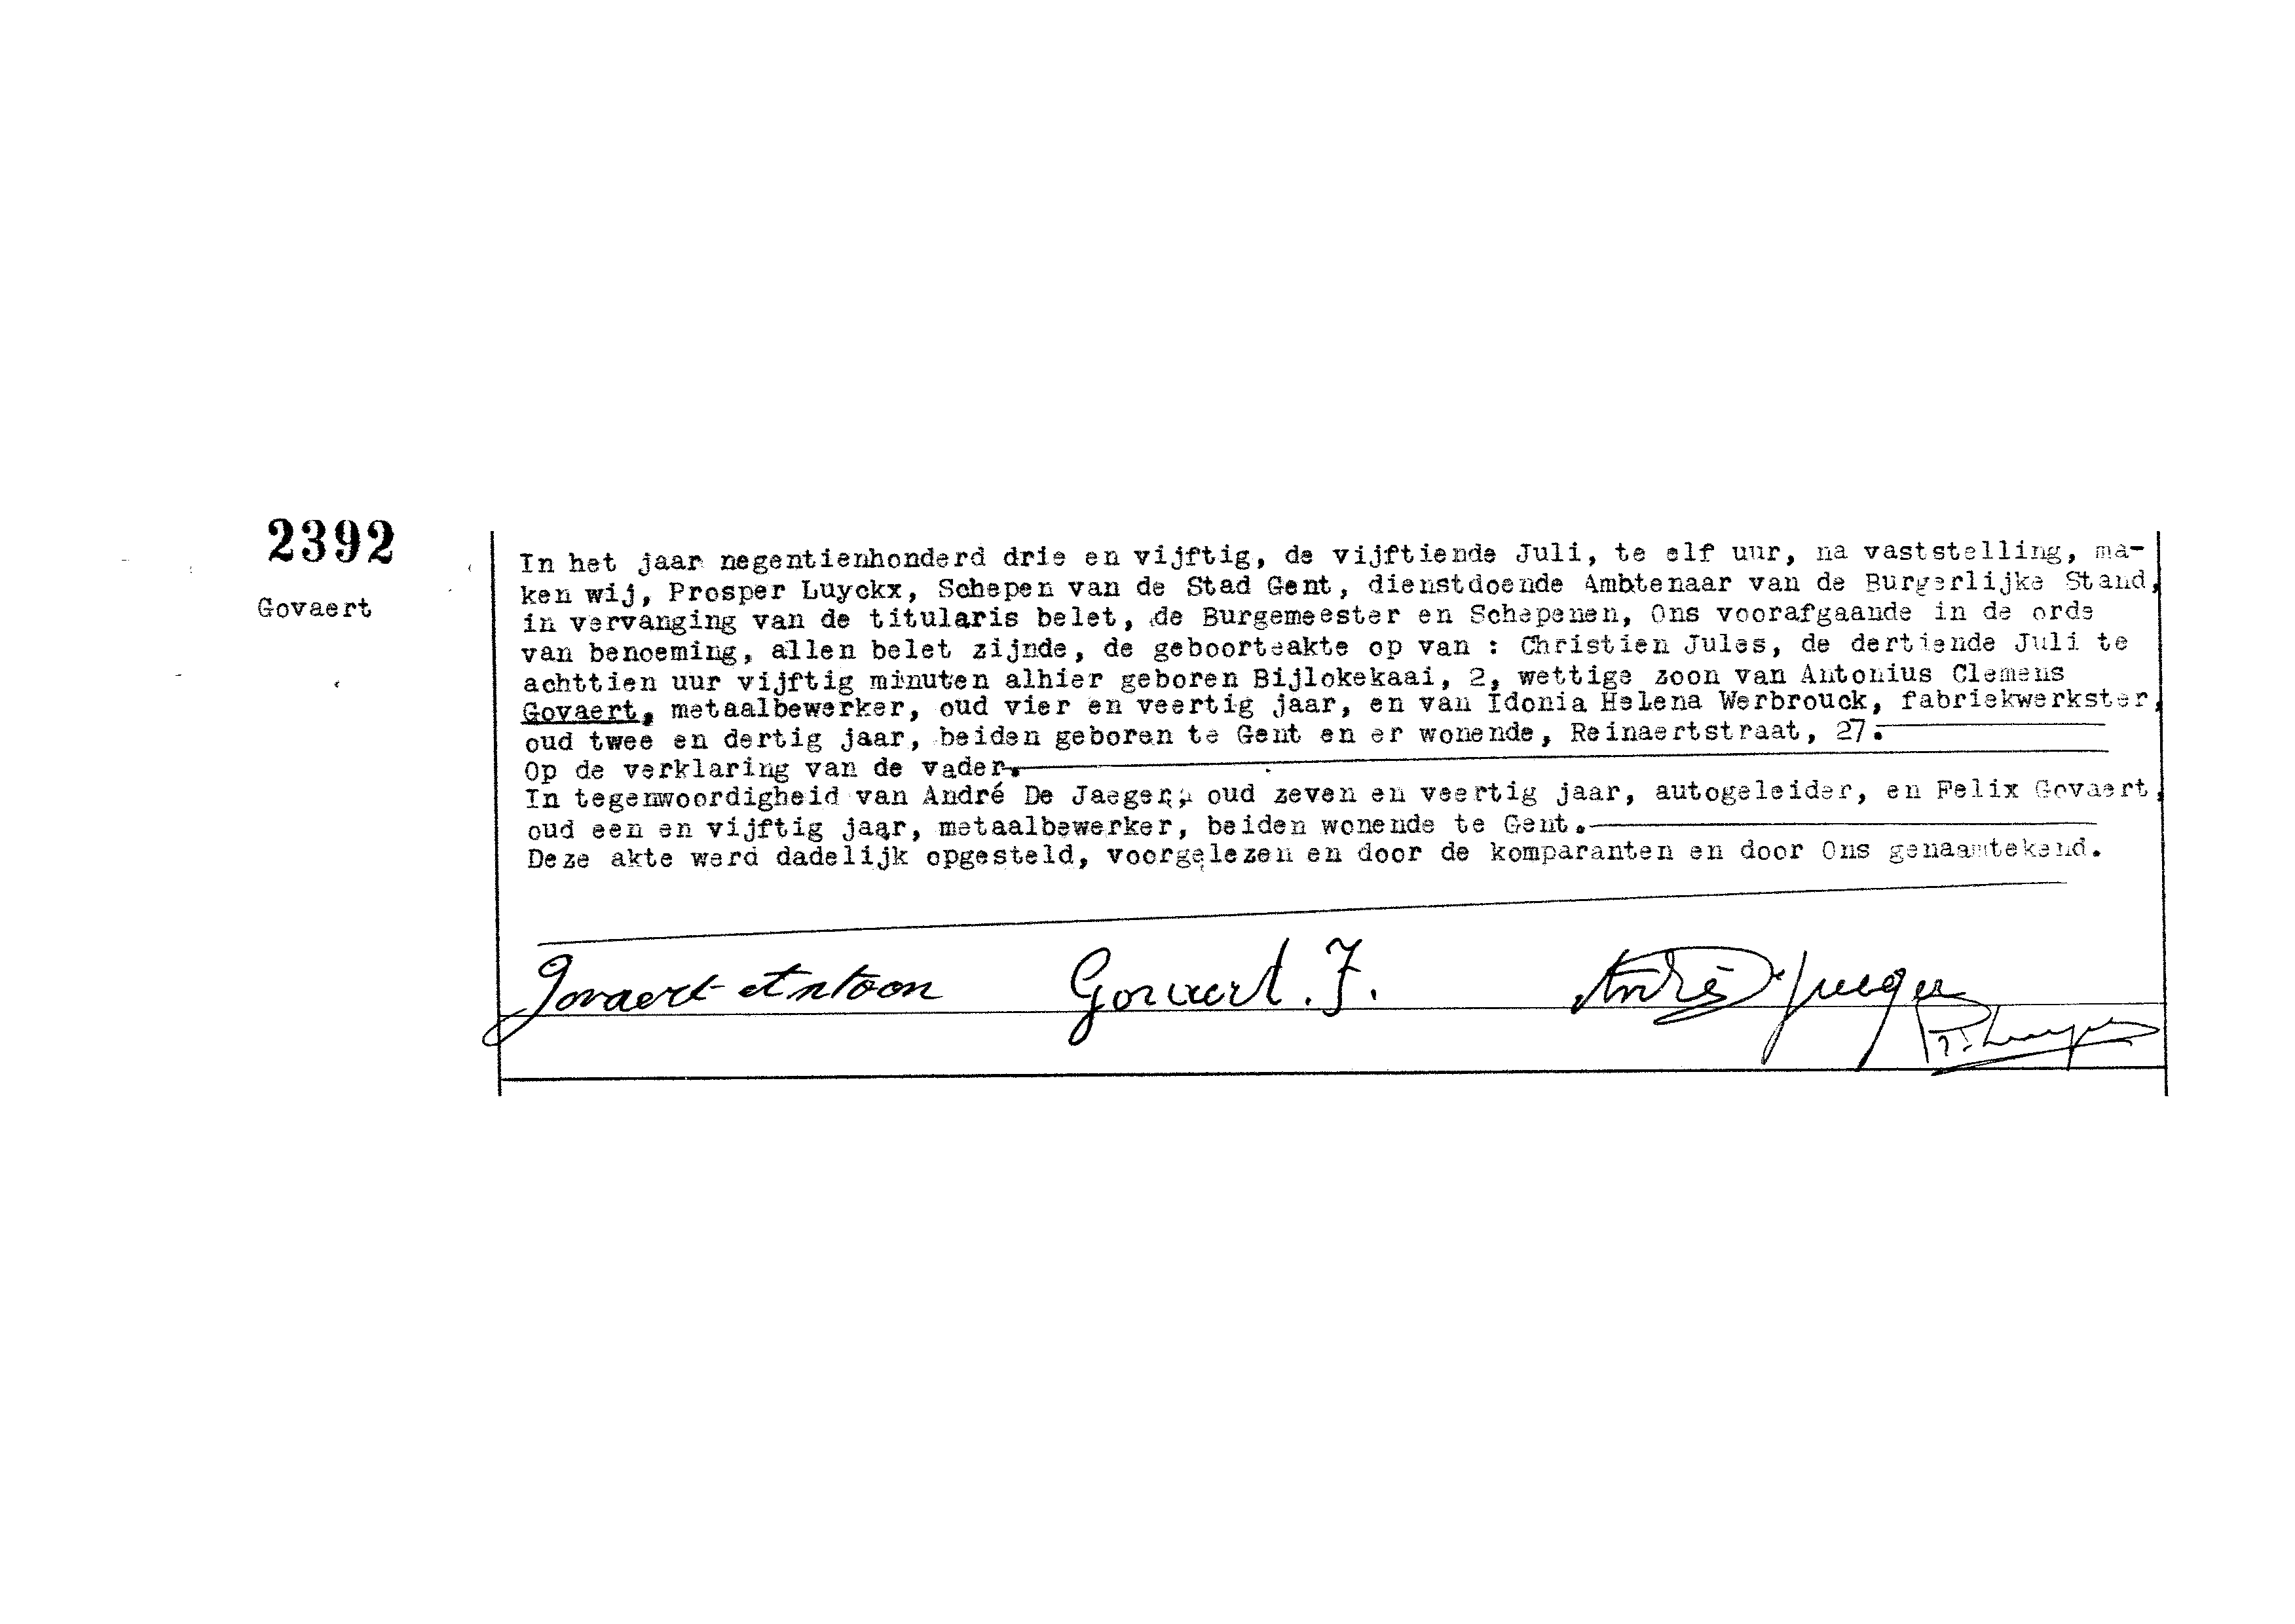 2392
Govaert
In het jaar negentienhonderd drie en vijftig, de vijftiende Juli, te elf uur, na vaststelling, ma-
ken wij, Prosper Luyckx, Schepen van de Stad Gent, dienstdoende Ambtenaar van de Burgerlijke Stand,
in vervanging van de titularis belet, de Burgemeester en Schepenen, Ons voorafgaande in de orde
van benoeming, allen belet zijnde, de geboorteakte op van : Christien Jules, de dertiende Juli te
achttien uur vijftig minuten alhier geboren Bijlokekaai, 2, wettige zoon van Antonius Clemens
Govaert, metaalbewerker, oud vier en veertig jaar, en van Idonia Helena Werbrouck, fabriekwerkster,
oud twee en dertig jaar, beiden geboren te Gent en er wonende, Reinaertstraat, 27.
Op de verklaring van de vader.
In tegenwoordigheid van André De Jaeger, oud zeven en veertig jaar, autogeleider, en Felix Govaert,
oud een en vijftig jaar, metaalbewerker, beiden wonende te Gent.
Deze akte werd dadelijk opgesteld, voorgelezen en door de komparanten en door Ons genaamtekend.
Govaert Antoon Govaert. F. André De Jaeger
P. Luyckx